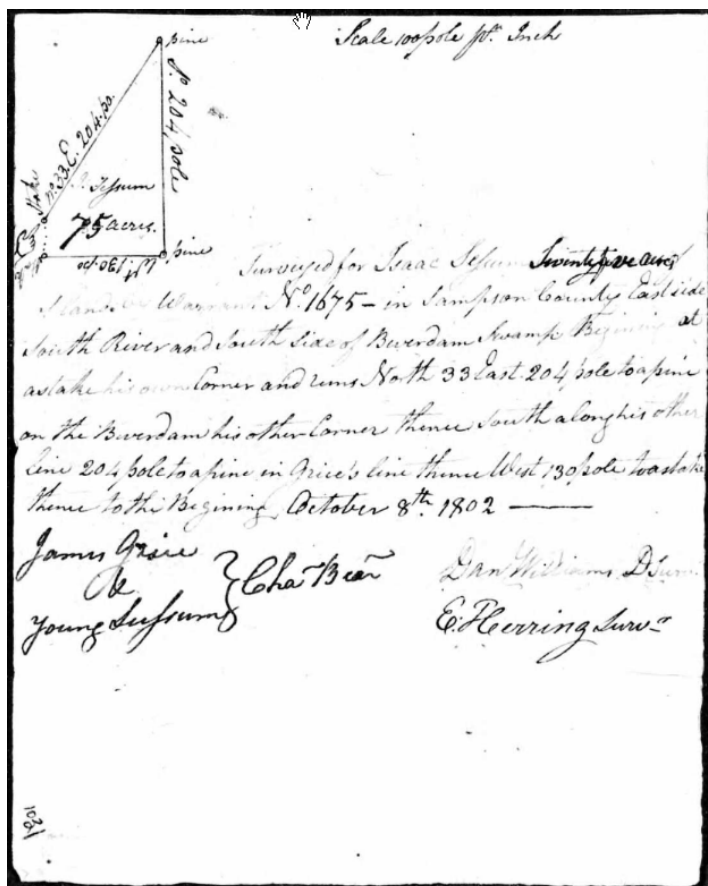 Scale 100 pole pr. Inch
pine
So. 204 pole
No. 33 E. 204 po.
Stake
I. Sessum
75 acres.
pine
Wt. 130 po
Surveyed for Isaac Sessum Seventy five acres
of land Warrant No. 1675 - in Sampson County East side
South River and South Side of Beverdam Swamp Begining at
a stake his own Corner and runs North 33 East 204 pole to a pine
on the Beverdam his other Corner thence South along his other
line 204 pole to a pine in Grice's line thence West 130 pole to a stake
thence to the Begining October 8th. 1802
James Grice
&
Young Sessum } Cha Bear
Dan Williams D Surv.
E. Herring Surv-r
1021